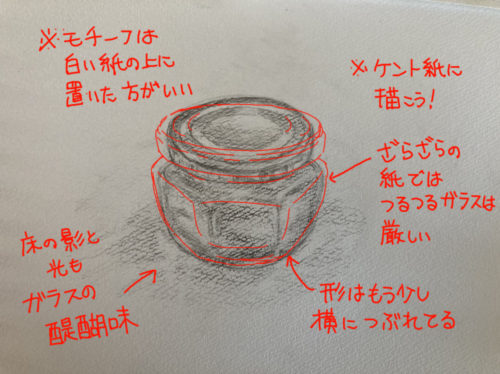 ※モチーフは
白い紙の上に
置いた方がいい
※ケント紙に
描こう!
ざらざらの
紙では
つるつるガラスは
厳しい
床の影と
光も
ガラスの
醍醐味
形はもう少し
横につぶれてる